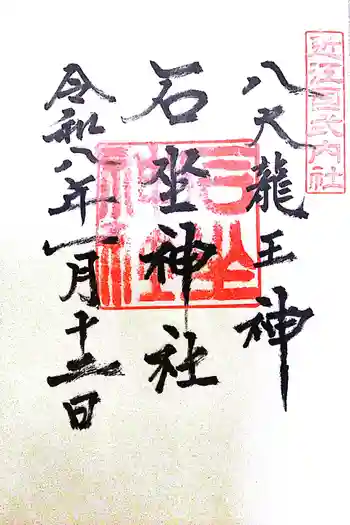 近江百式内社
八大龍王神
石坐神社
令和八年一月十二日
石坐神社